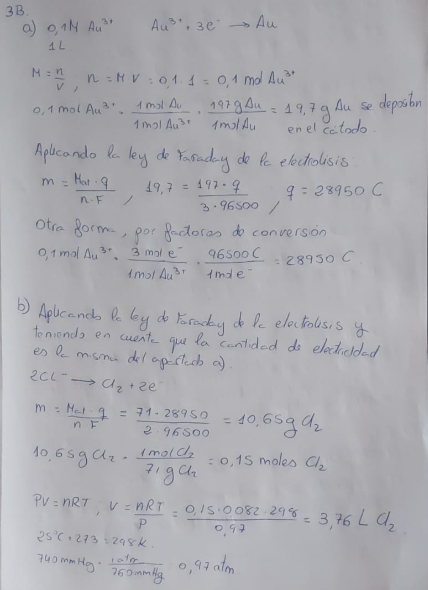 3B.
a) 0,1M Au³⁺ Au³⁺ + 3e⁻ → Au
1L
M = n/V , n = M·V = 0,1·1 = 0,1 mol Au³⁺
0,1 mol Au³⁺ · 1 mol Au/1 mol Au³⁺ · 197 g Au/1 mol Au = 19,7 g Au se depositan
en el cátodo.
Aplicando la ley de Faraday de la electrolisis
m = Mat·q/n·F , 19,7 = 197·q/3·96500 , q = 28950 C
Otra forma, por factores de conversión
0,1 mol Au³⁺ · 3 mol e⁻/1 mol Au³⁺ · 96500 C/1 mol e⁻ = 28950 C.
b) Aplicando la ley de Faraday de la electrolisis y
teniendo en cuenta que la cantidad de electricidad
es la misma del apartado a).
2Cl⁻ → Cl₂ + 2e⁻
m = Mat·q/n F = 71·28950/2·96500 = 10,65 g Cl₂
10,65 g Cl₂ · 1 mol Cl₂/71 g Cl₂ = 0,15 moles Cl₂
PV = nRT ; V = nRT/P = 0,15·0,082·298/0,97 = 3,76 L Cl₂.
25°C + 273 = 298 K.
740 mmHg · 1 atm/760 mmHg 0,97 atm